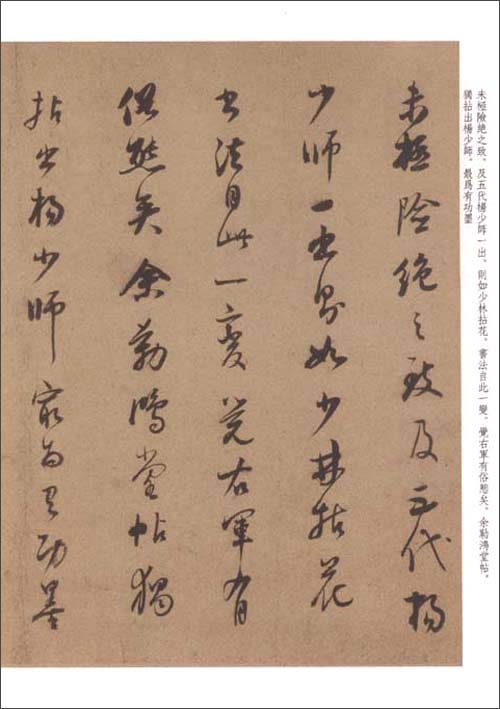 未極險絕之致、及五代楊少師一出、則如少林拈花、書法自此一變、覺右軍有俗態矣、余勒鴻堂帖、
獨拈出楊少師、最爲有功墨
未極險絕之致及五代楊
少師一出則如少林拈花
書法自此一變覺右軍有
俗態矣余勒鴻堂帖獨
拈出楊少師最為有功墨